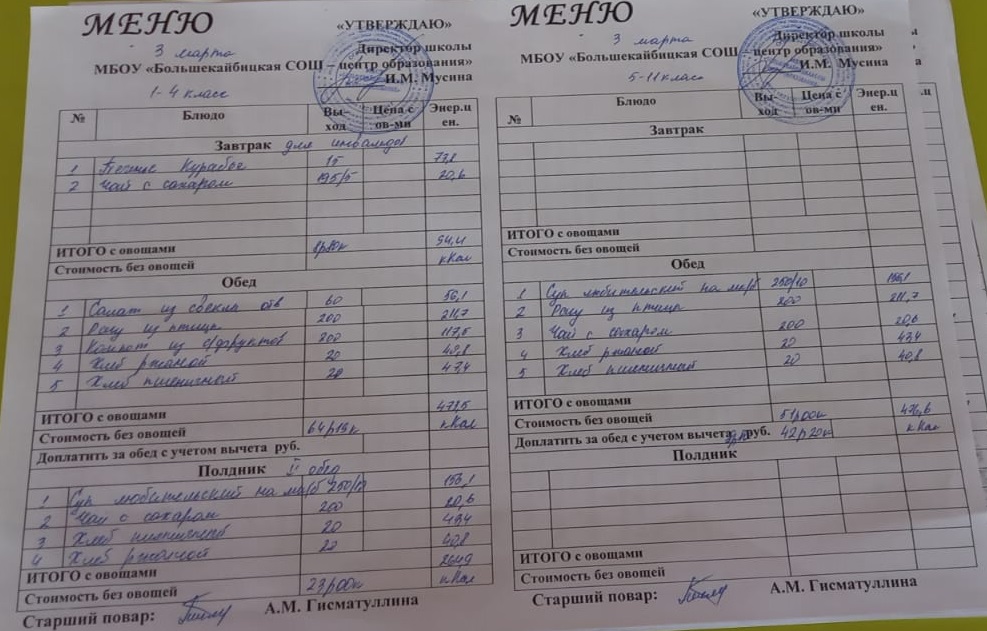 МЕНЮ
«УТВЕРЖДАЮ»
3 марта
Директор школы
МБОУ «Большекайбицкая СОШ – центр образования»
И.М. Мусина
1-4 класс
№ Блюдо Вы-ход Цена с ов-ми Энер.ц ен.
Завтрак для инвалидов
1 Печенье Курабье 15 73,8
2 Чай с сахаром 195/5 20,6
ИТОГО с овощами 94,4
Стоимость без овощей кКал
Обед
1 Салат из свеклы отв 60 56,1
2 Рагу из птицы 200 211,7
3 Компот из с/фруктов 200 117,5
4 Хлеб ржаной 20 40,8
5 Хлеб пшеничный 20 47,4
ИТОГО с овощами 473,5
Стоимость без овощей 64р19к кКал
Доплатить за обед с учетом вычета руб.
Полдник II обед
1 Суп любительский на м/б 250/10 153,1
2 Чай с сахаром 200 20,6
3 Хлеб пшеничный 20 49,4
4 Хлеб ржаной 20 40,8
ИТОГО с овощами
Стоимость без овощей 23р00к кКал
Старший повар: А.М. Гисматуллина
МЕНЮ
«УТВЕРЖДАЮ»
3 марта
Директор школы
МБОУ «Большекайбицкая СОШ – центр образования»
И.М. Мусина
5-11 класс
№ Блюдо Вы-ход Цена с ов-ми Энер.ц ен.
Завтрак
ИТОГО с овощами
Стоимость без овощей
Обед
1 Суп любительский на м/б 250/10
2 Рагу из птицы 200 211,7
3 Чай с сахаром 200 20,6
4 Хлеб ржаной 20 43,4
5 Хлеб пшеничный 20 40,8
ИТОГО с овощами
Стоимость без овощей 51р00к 476,6
Доплатить за обед с учетом вычета руб. 42р20к кКал
Полдник
ИТОГО с овощами
Стоимость без овощей
Старший повар: А.М. Гисматуллина